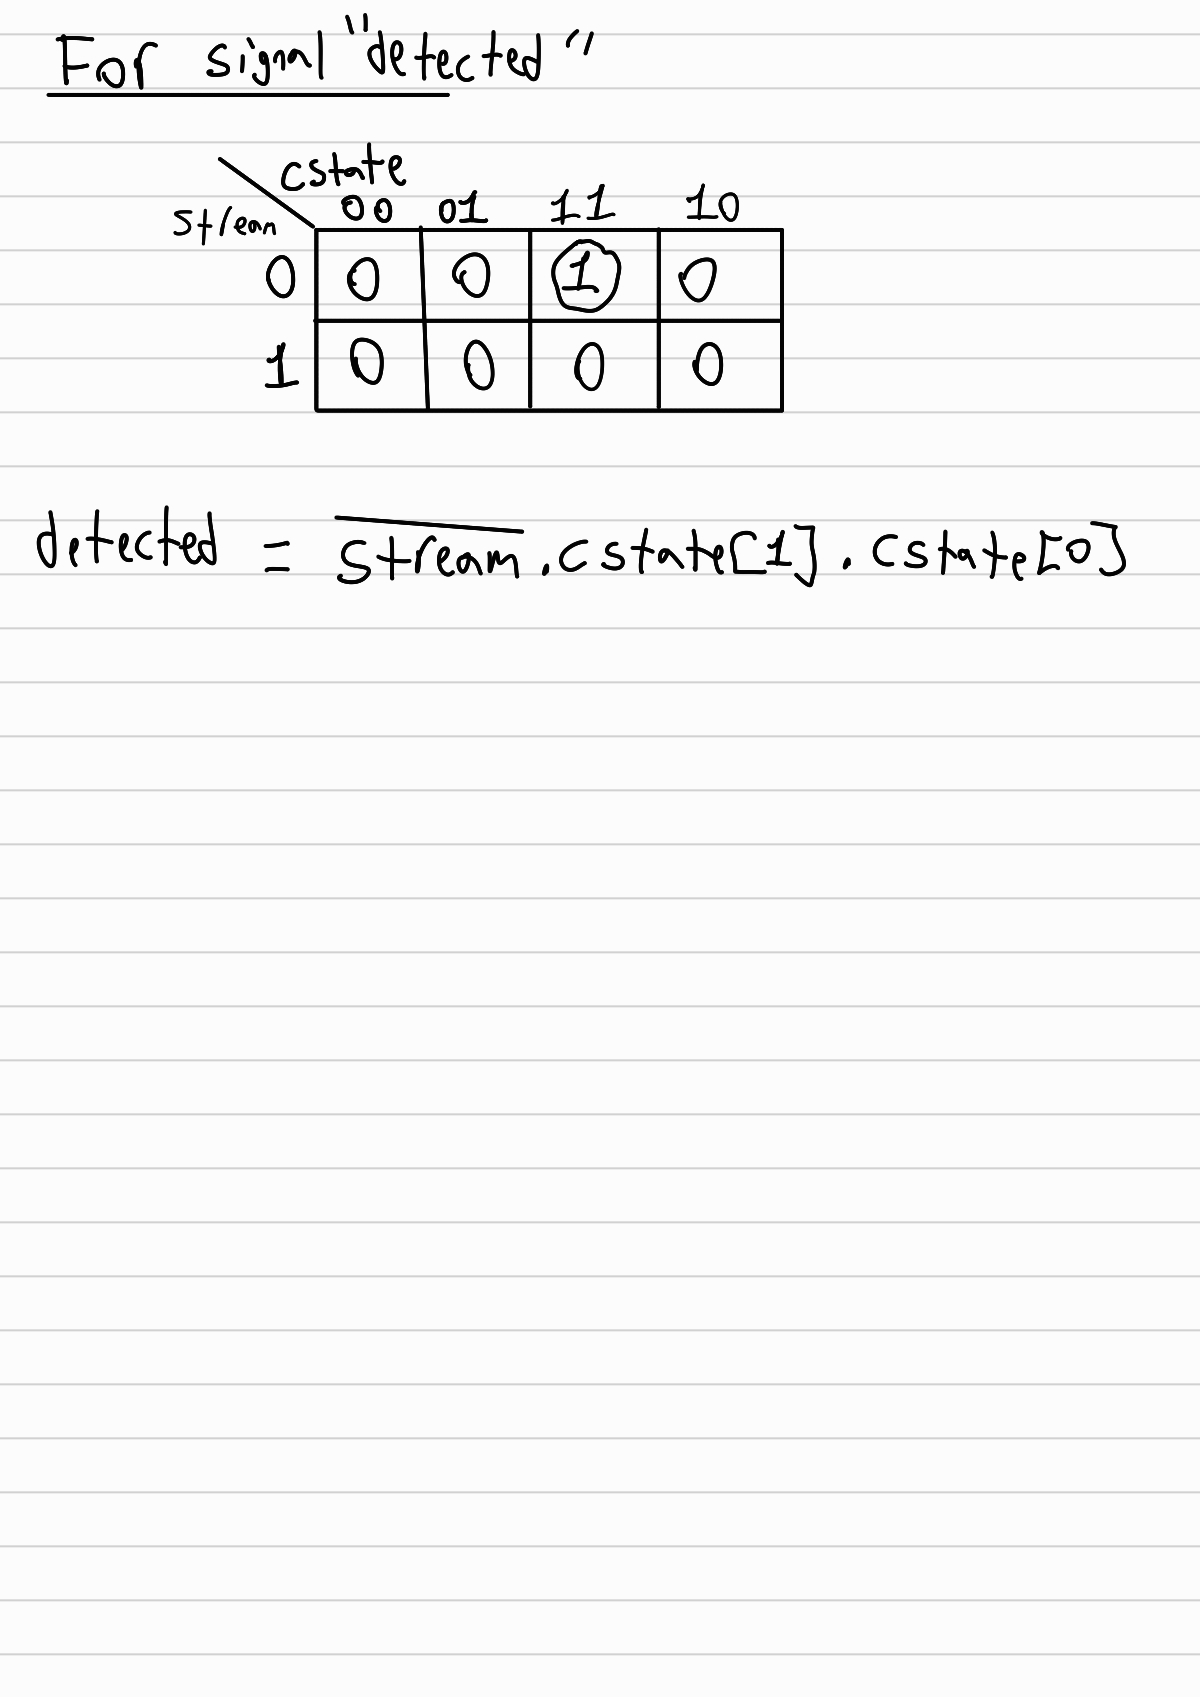 For signal "detected"
cstate
stream 00 01 11 10
0 0 0 1 0
1 0 0 0 0
detected = \overline{stream}.cstate[1].cstate[0]